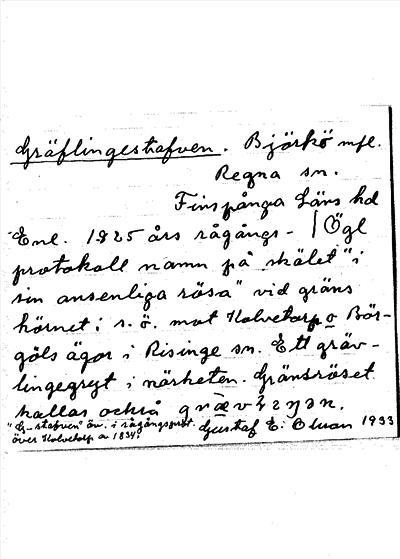 Gräflingestafven. Björkö mfl.
Regna sn.
Finspånga Läns hd
Enl. 1825 års rågångs- / Ögl
protokoll namn på skälet "i
sin ansenliga rösa" vid gräns
hörnet i s.ö. mot Kolvetorp o Bör-
göls ägor i Risinge sn. Ett gräv-
lingegryt i närheten. Gränsröset
kallas också
"G-stafven" äv. i rågångsprot.
över Kolvetorp av 1834.
Gustaf E: Bluan 1933